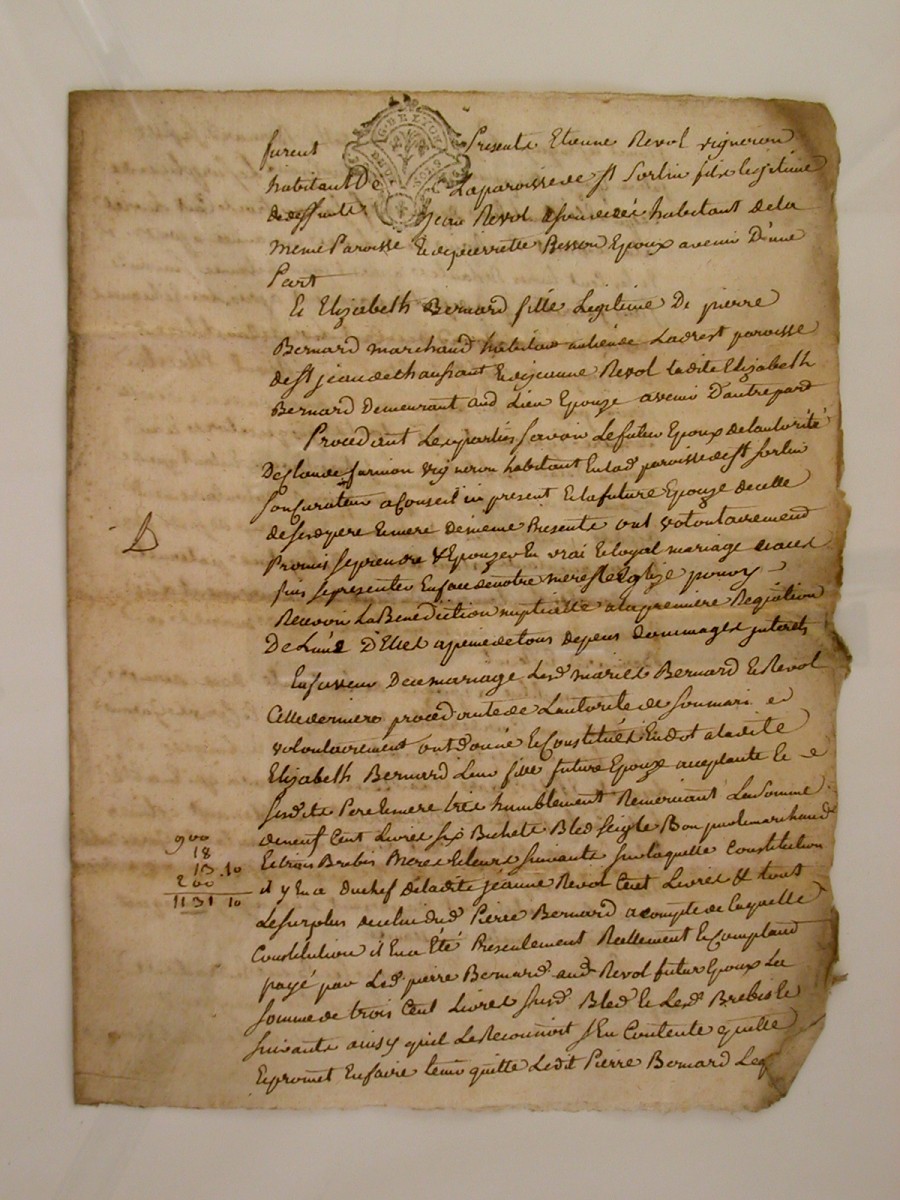 furent Presents Etienne Revol vigneron
habitant De La paroisse de St Sorlin fils legitime
de deffunt Jean Revol habitant de la
meme Paroisse et de pierrette Bisson Epoux avenir D'une
Part
Et Elizabeth Bernard fille Legitime De pierre
Bernard marchand habitant au lieu de paroisse
de St jean de chaussant et de jeanne Revol ladite Elizabeth
Bernard Demeurant aud Lieu Epouze avenir D'autre part
Procedant Les parties savoir Le futur Epoux de lautorité
De Claude vigneron habitant En lad paroisse de St Sorlin
Son Curateur a Conseil icy present Et la future Epouze de celle
de sesd pere et mere de meme Presents ont volontairement
Promis se prendre & Epouzer En vrai Et loyal mariage
se presenter En face de notre mere Ste Eglize pour y
Recevoir La Benediction nuptialle a la premiere Requition
De L'une D'Elles a peine de tous depens dommages interets
En faveur De ce mariage Lesd mariés Bernard Et Revol
Cette derniere procedante de Lautorité de Son mari
volontairement ont donné Et Constitués En dot a ladite
Elizabeth Bernard Leur fille future Epouze acceptante Et
susdits Pere et mere très humblement Remerciant La Somme
de neuf Cent Livres six Bichets Bled seigle Bon pur et marchand
Et trois Brebis Meres et leurs Suivants sur laquelle Constitution
il y En a du chef de ladite jeanne Revol Cent Livres & tout
Le surplus de celui dud Pierre Bernard a compte de Laquelle
Constitution il En a Eté Presentement Reellement Et Comptant
payé par Led pierre Bernard aud Revol futur Epoux La
somme de trois Cent Livres susd Bled Et Lesd Brebis Et
suivants ainsy qu'il Le Reconnoit S'En Contente quitte
Et promet En faire tenir quitte Ledit Pierre Bernard
900
18
13 .10
200
1131 10